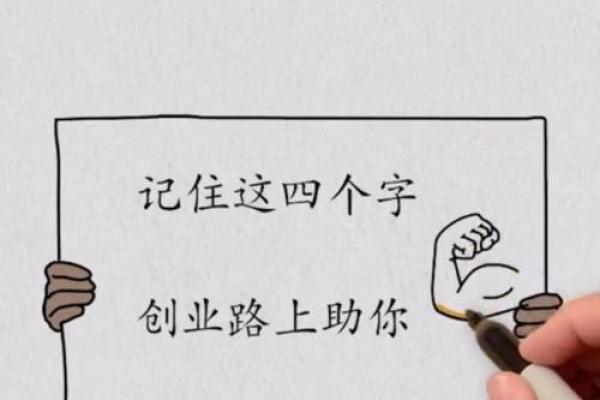 记住这四个字
创业路上助你